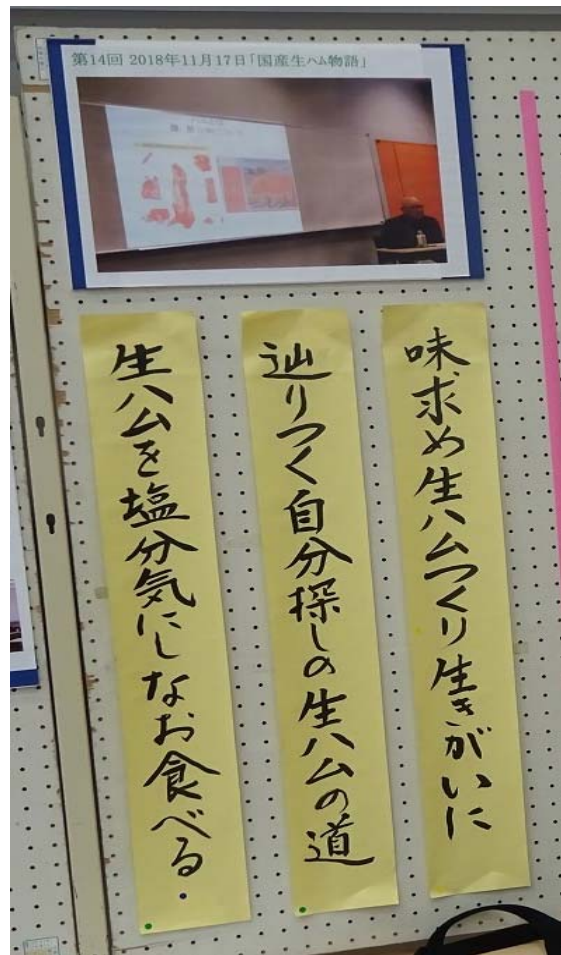 第14回 2018年11月17日「国産生ハム物語」
味求め生ハムつくり生きがいに
辿りつく自分探しの生ハムの道
生ハムを塩分気にしなお食べる・